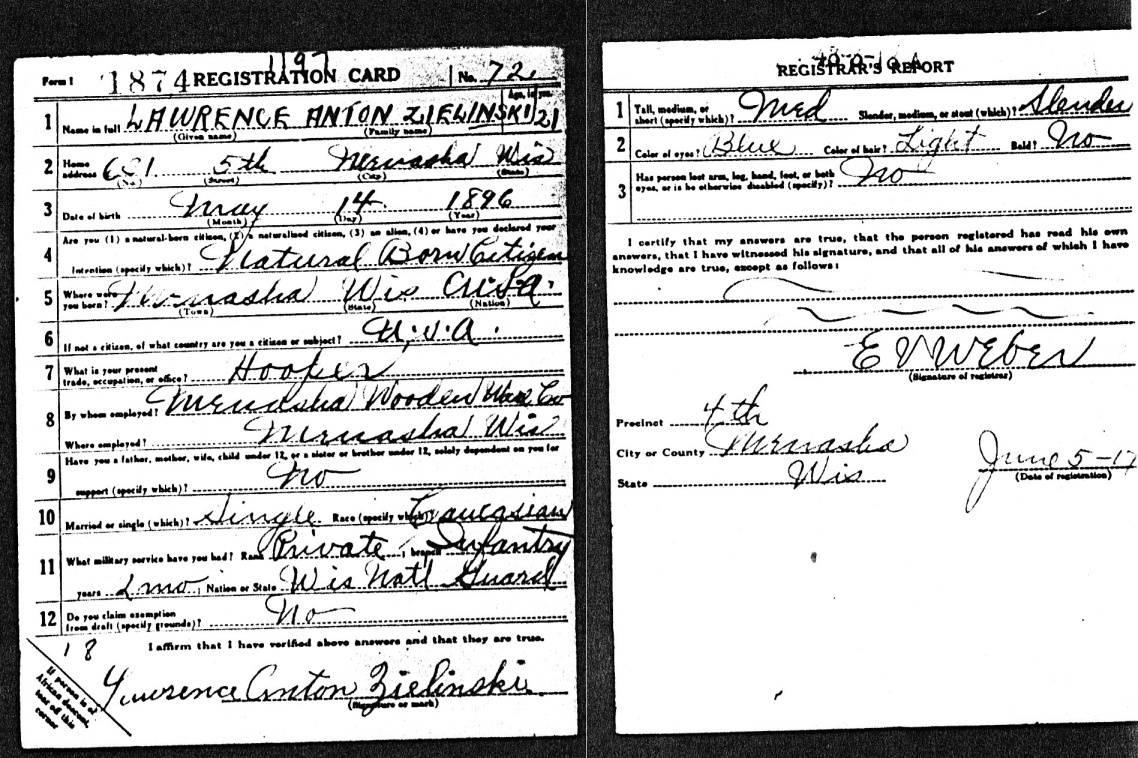 1197
Form 1 1874 REGISTRATION CARD No. 72
Age, in yrs.
1 Name in full LAWRENCE ANTON ZIELINSKI 21
(Given name) (Family name)
2 Home address 5th Menasha Wis
(No.) (Street) (City) (State)
3 Date of birth May 14 1896
(Month) (Day) (Year)
4 Are you (1) a natural-born citizen, (2) a naturalized citizen, (3) an alien, (4) or have you declared your
intention (specify which)? Natural Born Citizen
5 Where were you born? Menasha Wis U.S.A.
(Town) (State) (Nation)
6 If not a citizen, of what country are you a citizen or subject? U.S.A.
7 What is your present trade, occupation, or office? Hooper
8 By whom employed? Menasha Wooden Ware Co
Where employed? Menasha Wis
9 Have you a father, mother, wife, child under 12, or a sister or brother under 12, solely dependent on you for
support (specify which)? No
10 Married or single (which)? Single Race (specify which)? Caucasian
11 What military service have you had? Rank Private ; branch Infantry
years 2 mo ; Nation or State Wis Natl Guard
12 Do you claim exemption from draft (specify grounds)? No
I affirm that I have verified above answers and that they are true.
18
If person is of African descent, tear off this corner
Lawrence Anton Zielinski
(Signature or mark)
REGISTRAR'S REPORT
1 Tall, medium, or short (specify which)? Med Slender, medium, or stout (which)? Slender
2 Color of eyes? Blue Color of hair? Light Bald? No
3 Has person lost arm, leg, hand, foot, or both eyes, or is he otherwise disabled (specify)? No
I certify that my answers are true, that the person registered has read his own
answers, that I have witnessed his signature, and that all of his answers of which I have
knowledge are true, except as follows:
E V WEBER
(Signature of registrar)
Precinct 4th
City or County Menasha
State Wis
June 5-17
(Date of registration)